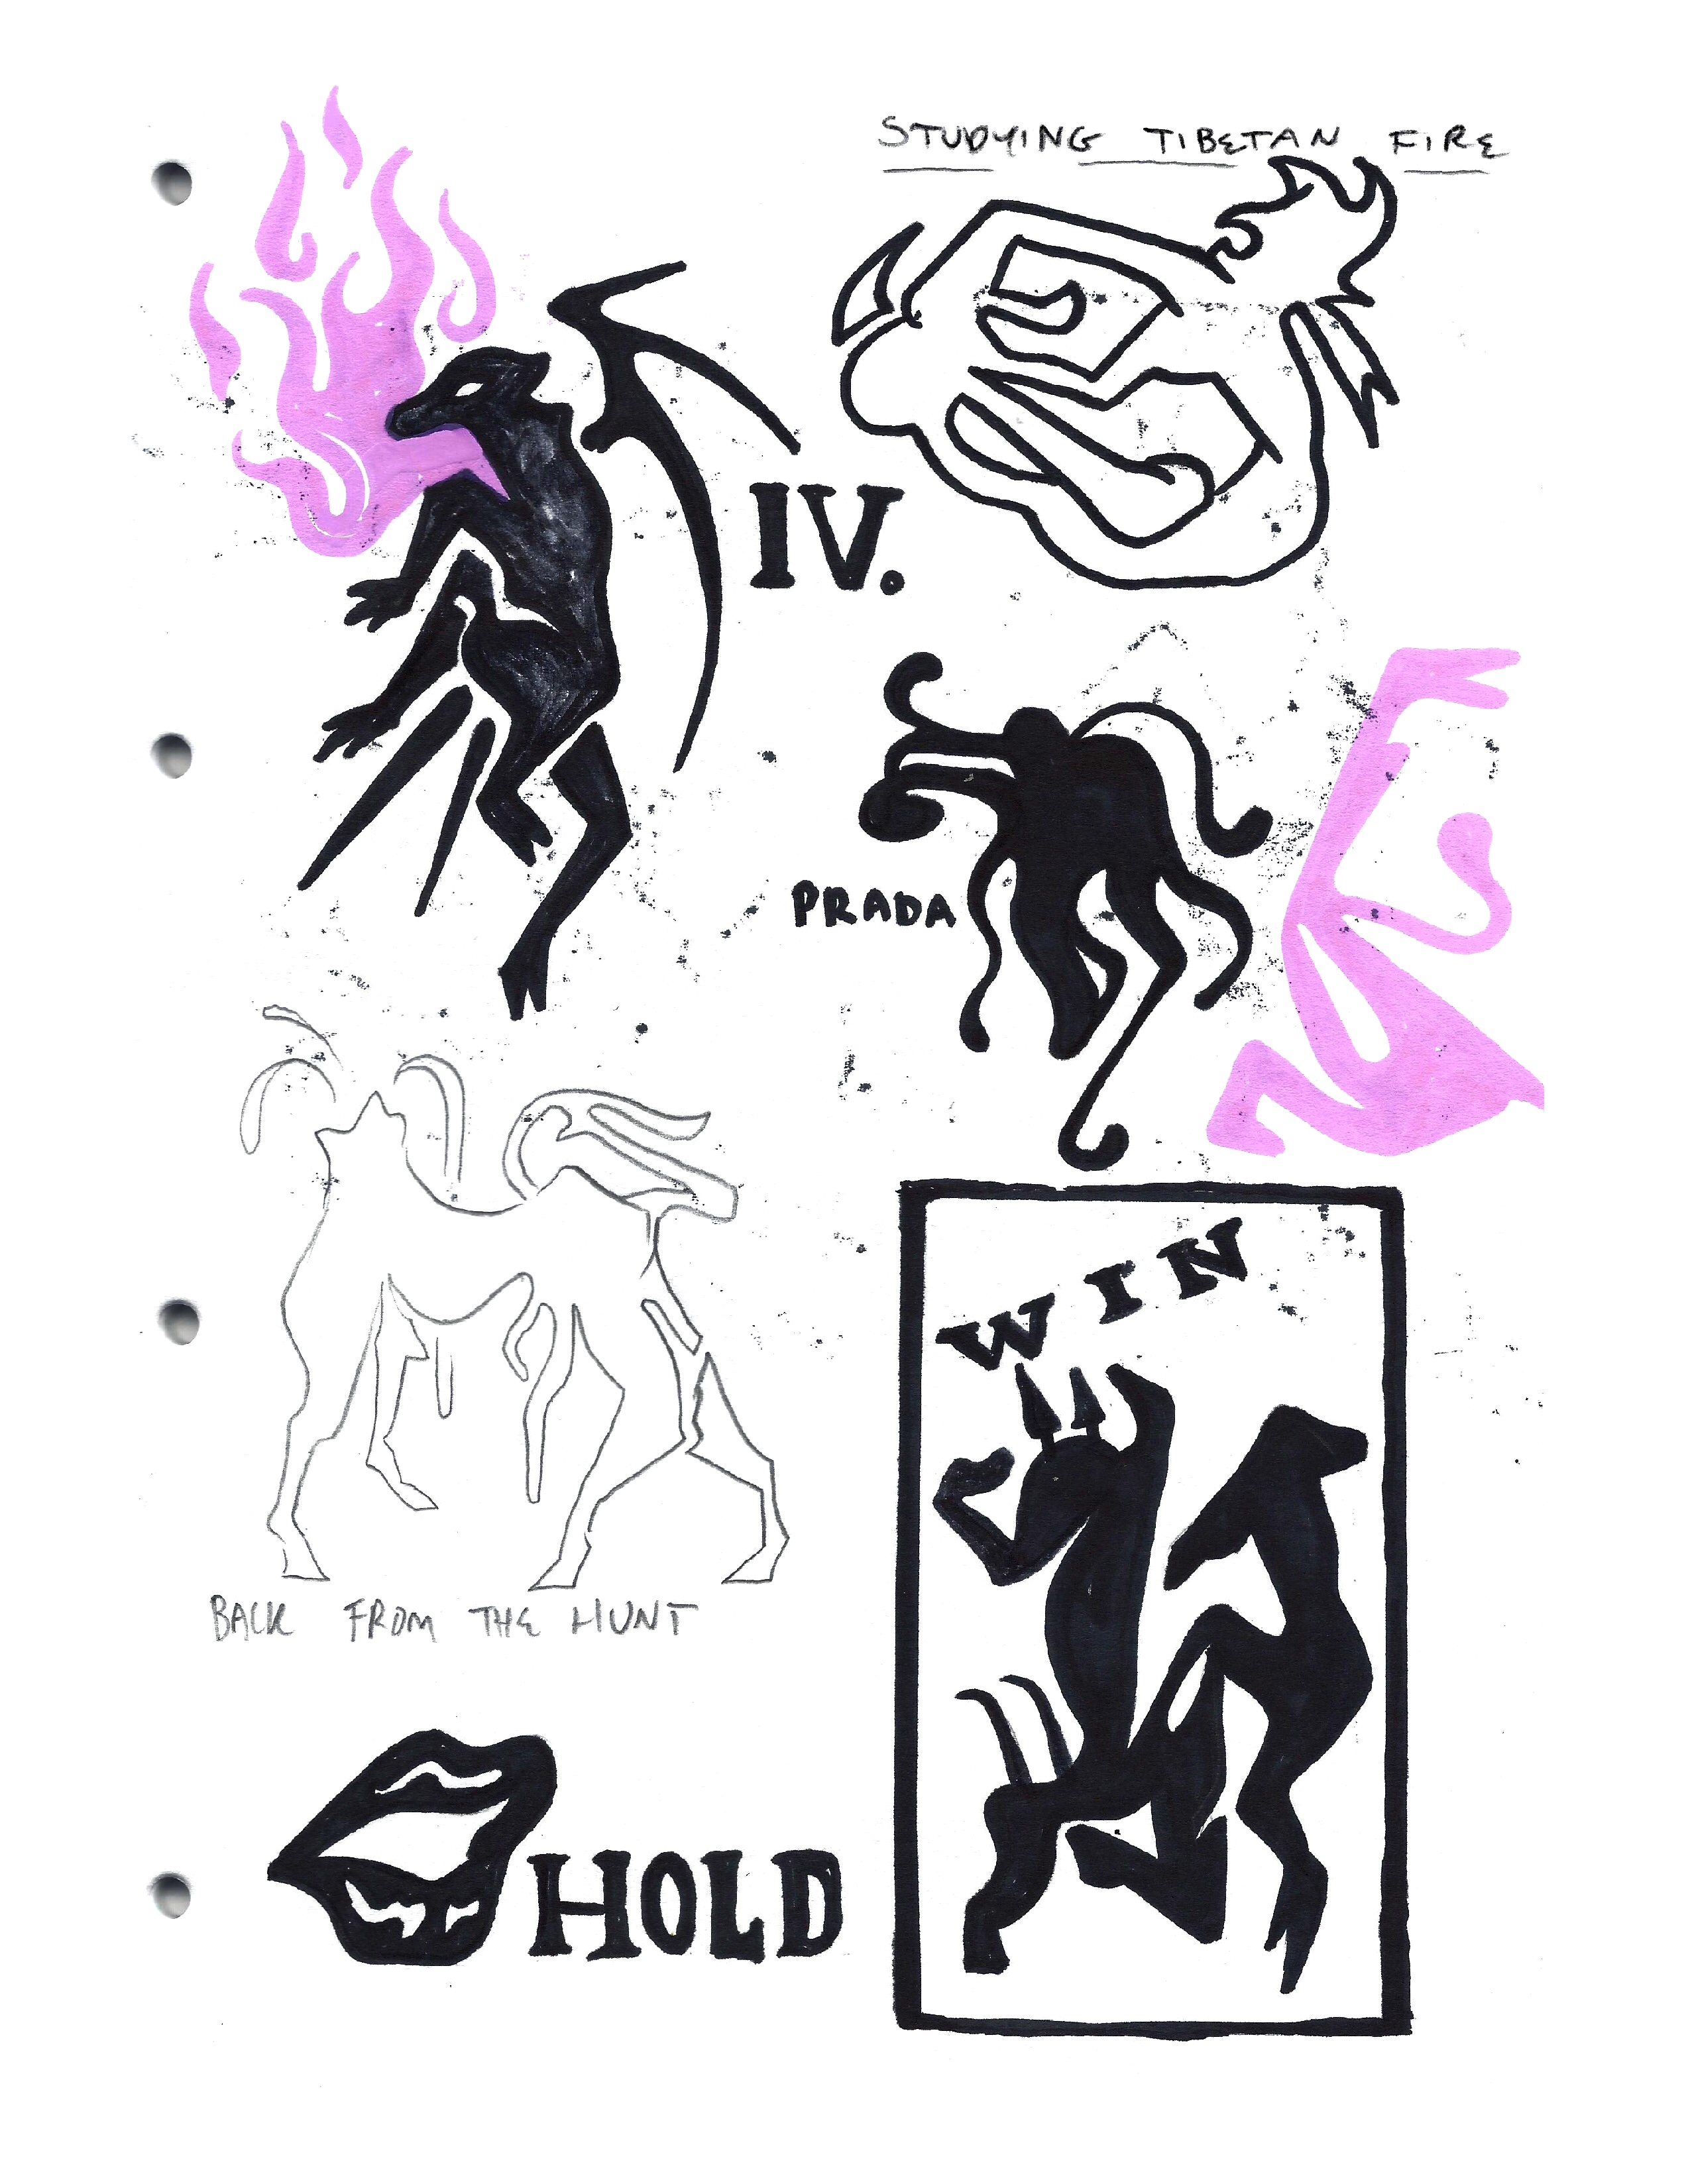 STUDYING TIBETAN FIRE
IV.
PRADA
WIN
BACK FROM THE HUNT
HOLD